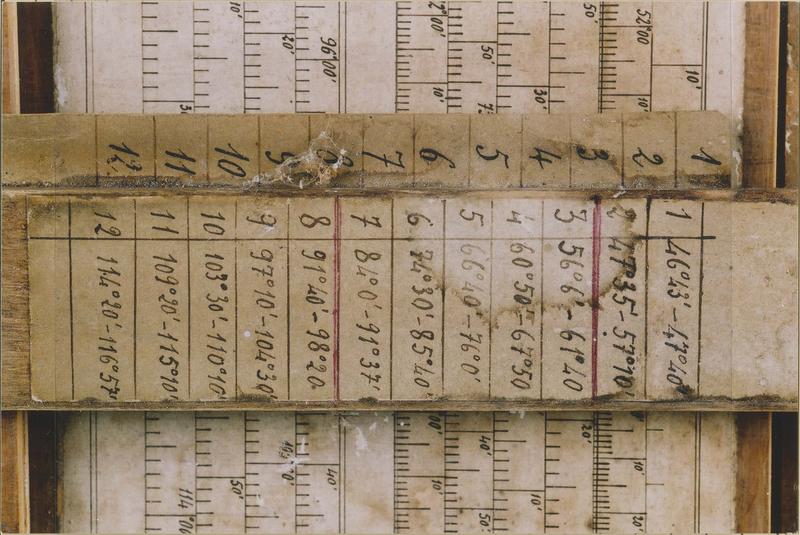 52°00'
10'
10'
50'
30'
50'
10'
96°00'
20'
10'
1
2
3
4
5
6
7
8
9
10
11
12
1 46°43'-47°40'
2 47°35'-57°10'
3 56°6'-61°40
4 60°50'-67°30
5 66°40-76°0'
6 74°30'-85°40'
7 84°0'-91°37'
8 91°40'-98°20
9 97°10'-104°30'
10 103°30'-110°10'
11 109°20'-115°10'
12 114°20'-116°57'
10'
20'
20'
10'
40'
50'
10'
40'
50'